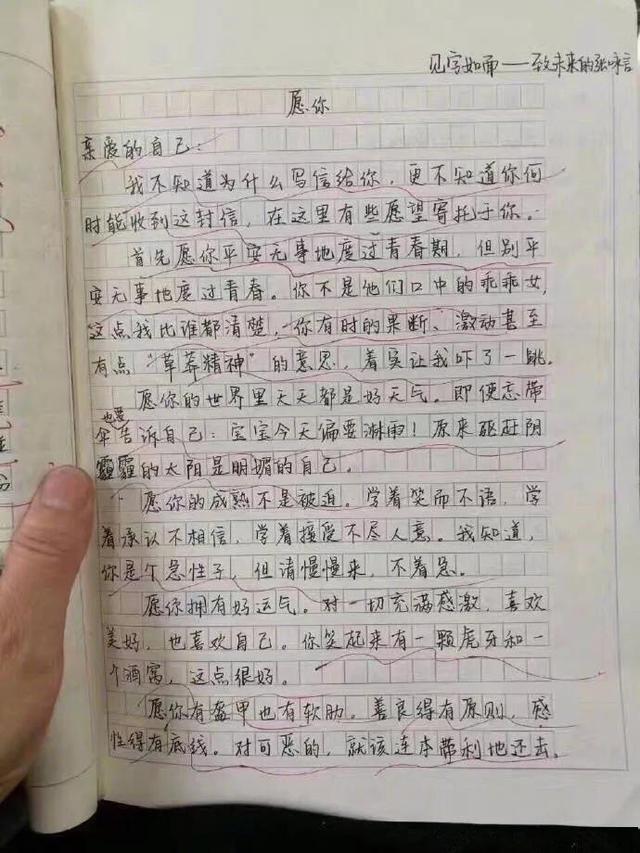 见字如面——致未来的张咏言
愿你
亲爱的自己：
我不知道为什么写信给你，更不知道你何
时能收到这封信，在这里有些愿望寄托于你。
首先愿你平安无事地度过青春期，但别平
安无事地度过青春。你不是他们口中的乖乖女，
这点我比谁都清楚，你有时的果断、激动甚至
有点“草莽精神”的意思，着实让我吓了一跳。
愿你的世界里天天都是好天气。即使忘带
也要
伞告诉自己：宝宝今天偏要淋雨！原来驱赶阴
霾霾的太阳是明媚的自己。
愿你的成熟不是被迫。学着笑而不语，学
着承认不相信，学着接受不尽人意。我知道，
你是个急性子，但请慢慢来，不着急。
愿你拥有好运气。对一切充满感激，喜欢
美好，也喜欢自己。你笑起来有一颗虎牙和一
个酒窝，这点很好。
愿你有盔甲也有软肋。善良得有原则，感
性得有底线。对可恶的，就该连本带利地还去。